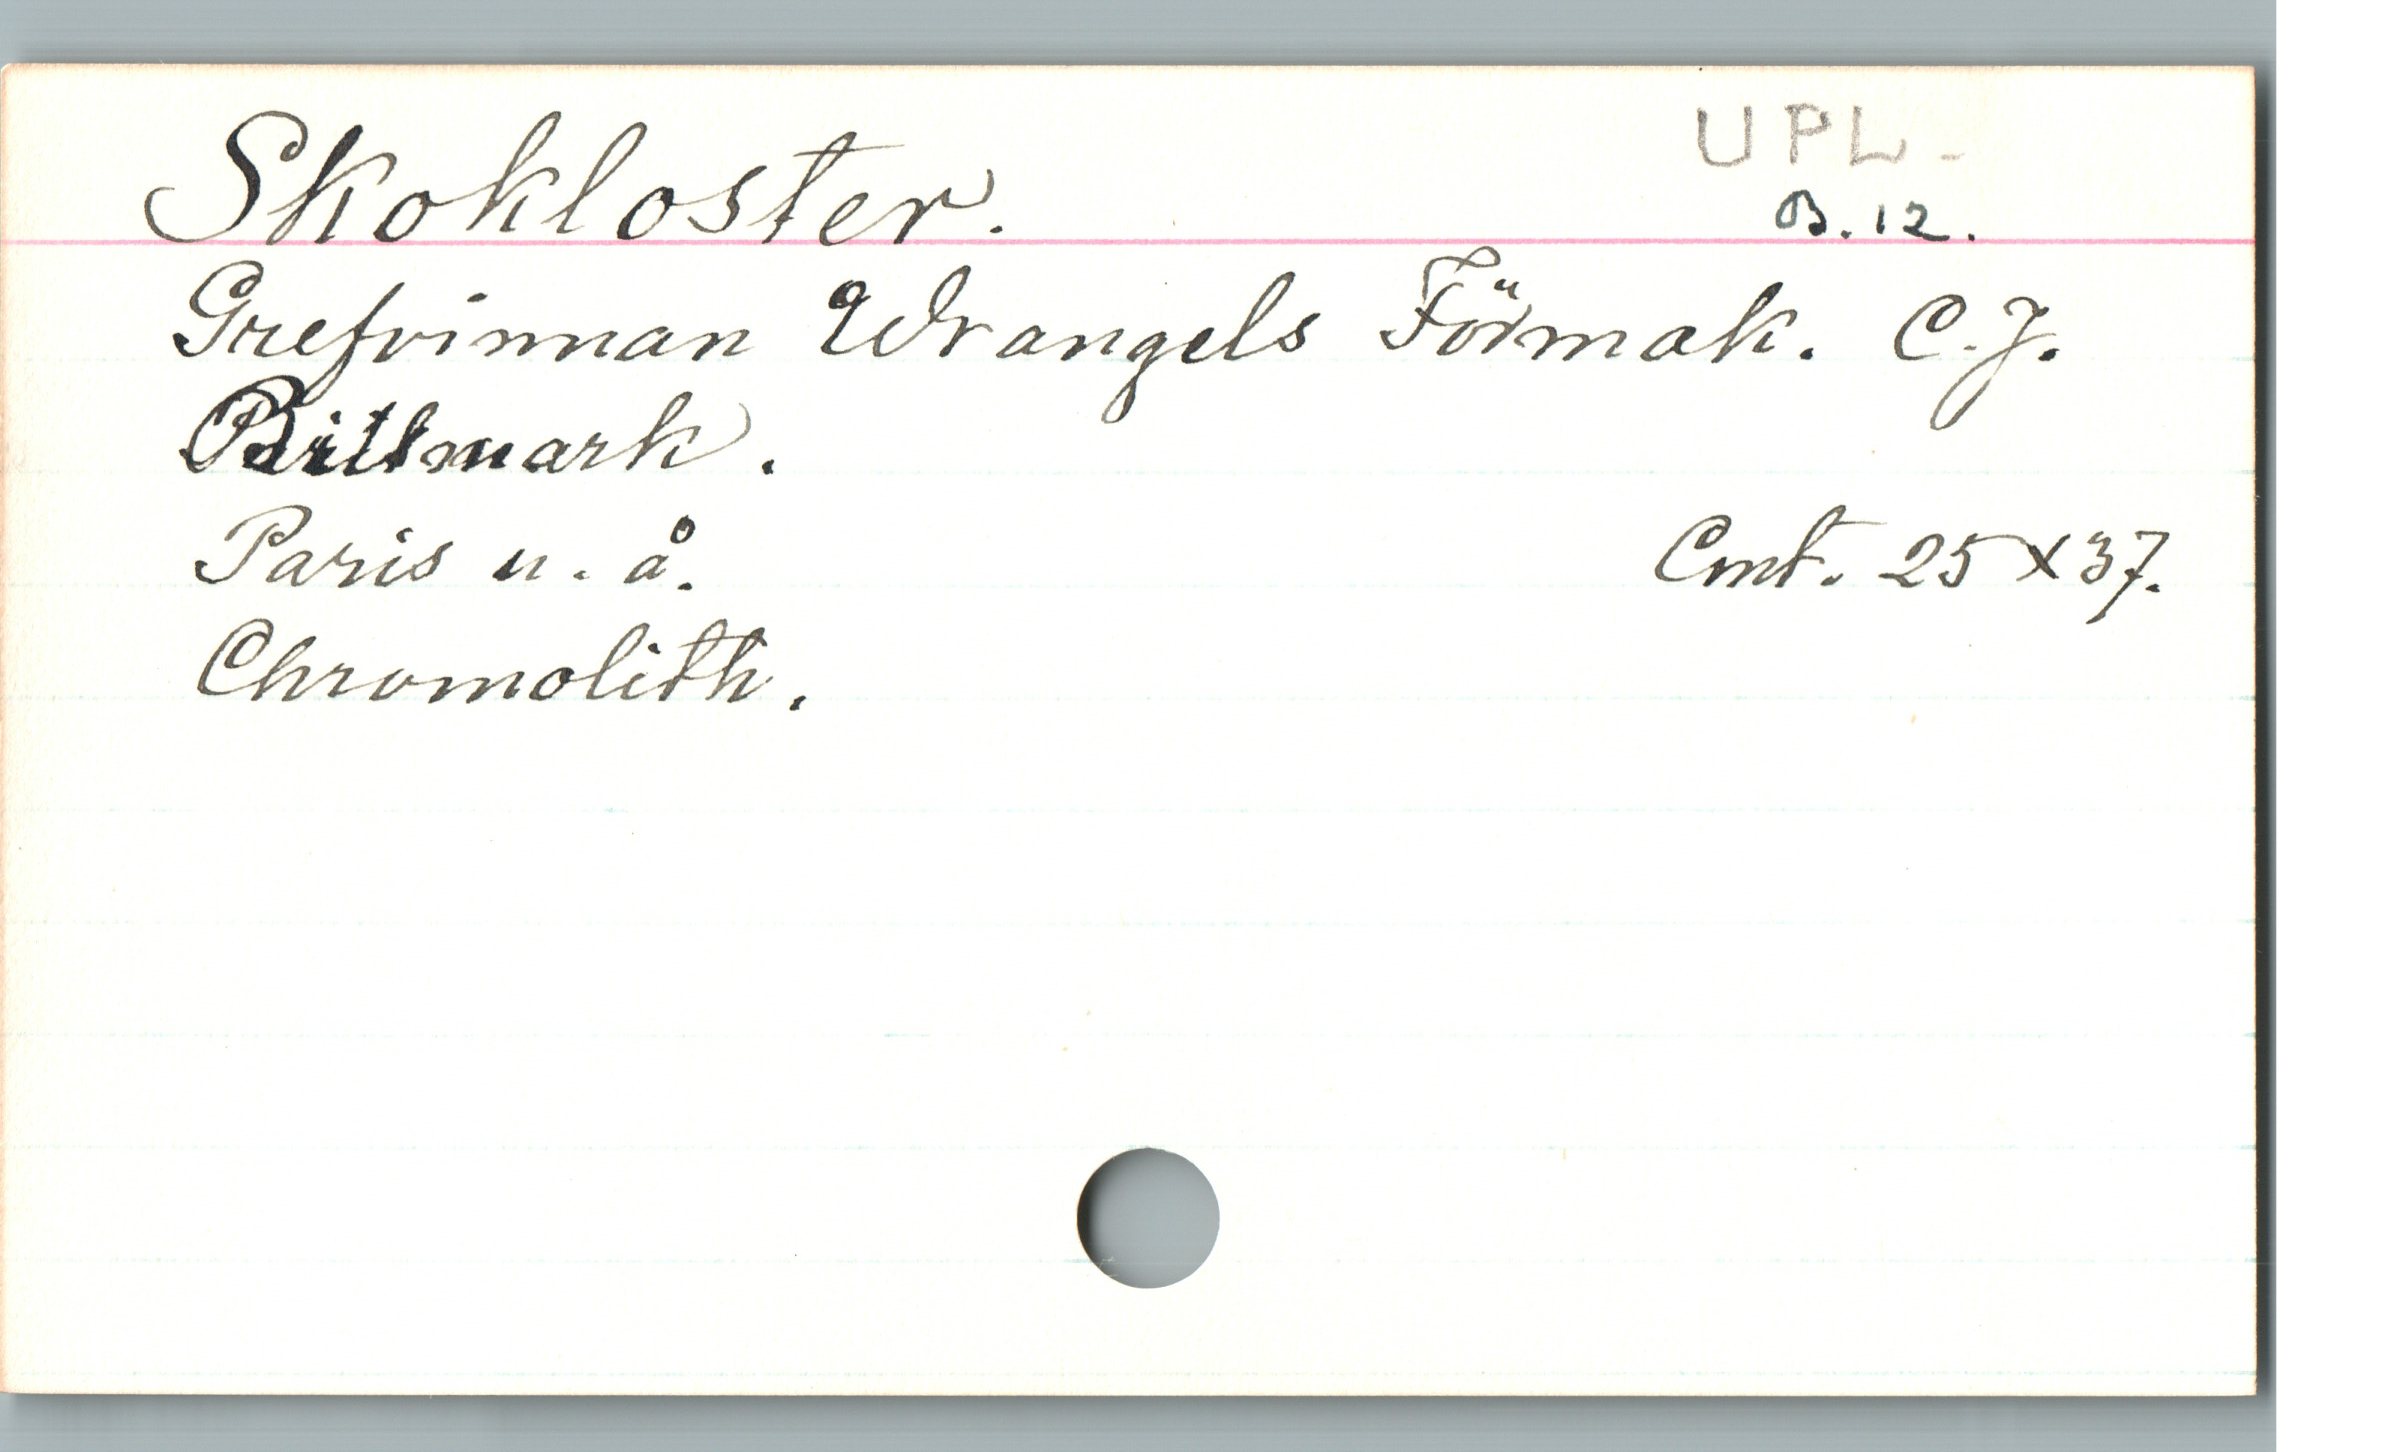 Skokloster.
UPL-
B. 12.
Grefvinnan Wrangels Förmak. C. J.
Billmark.
Paris u. å.
Cmt. 25 x 37.
Chromolith.